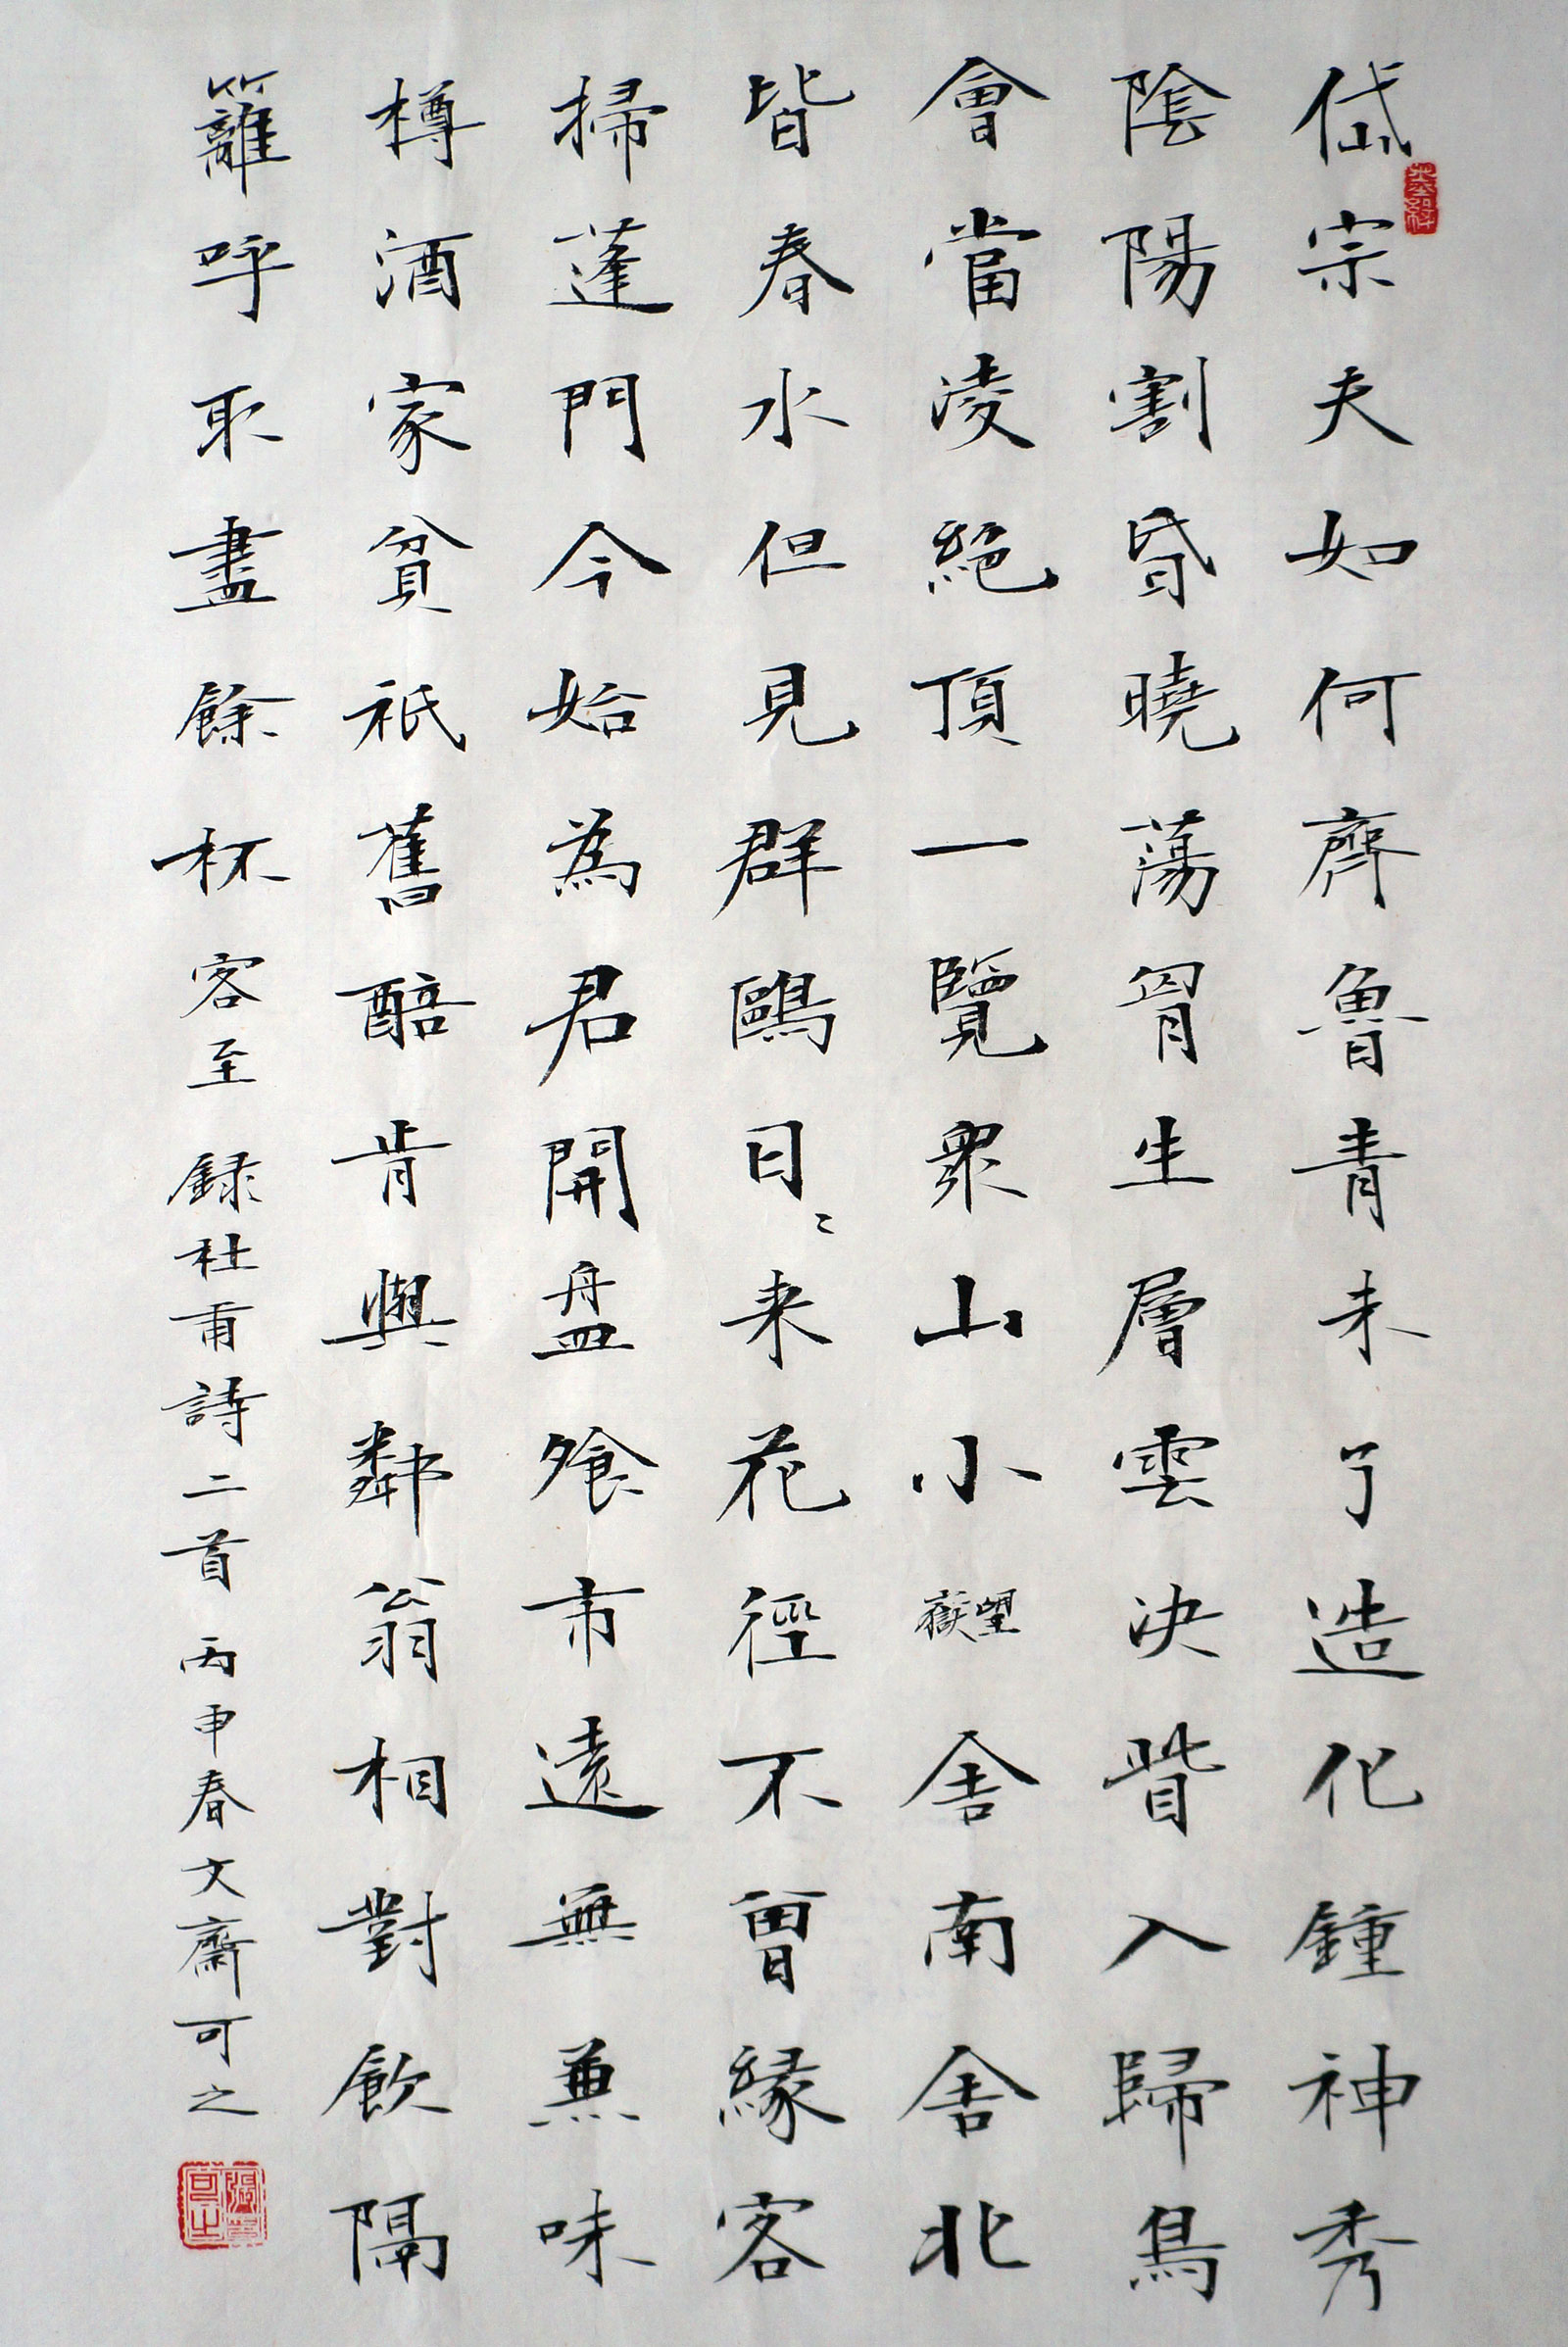 岱宗夫如何齊魯青未了造化鍾神秀
陰陽割昏曉蕩胷生層雲決眥入歸鳥
會當凌絕頂一覽衆山小望嶽舍南舍北
皆春水但見群鷗日〻来花徑不曾緣客
掃蓬門今始為君開盘飧市遠無兼味
樽酒家貧祇舊醅肯與鄰翁相對飲隔
籬呼取盡餘杯客至 録杜甫詩二首 丙申春文齋可之